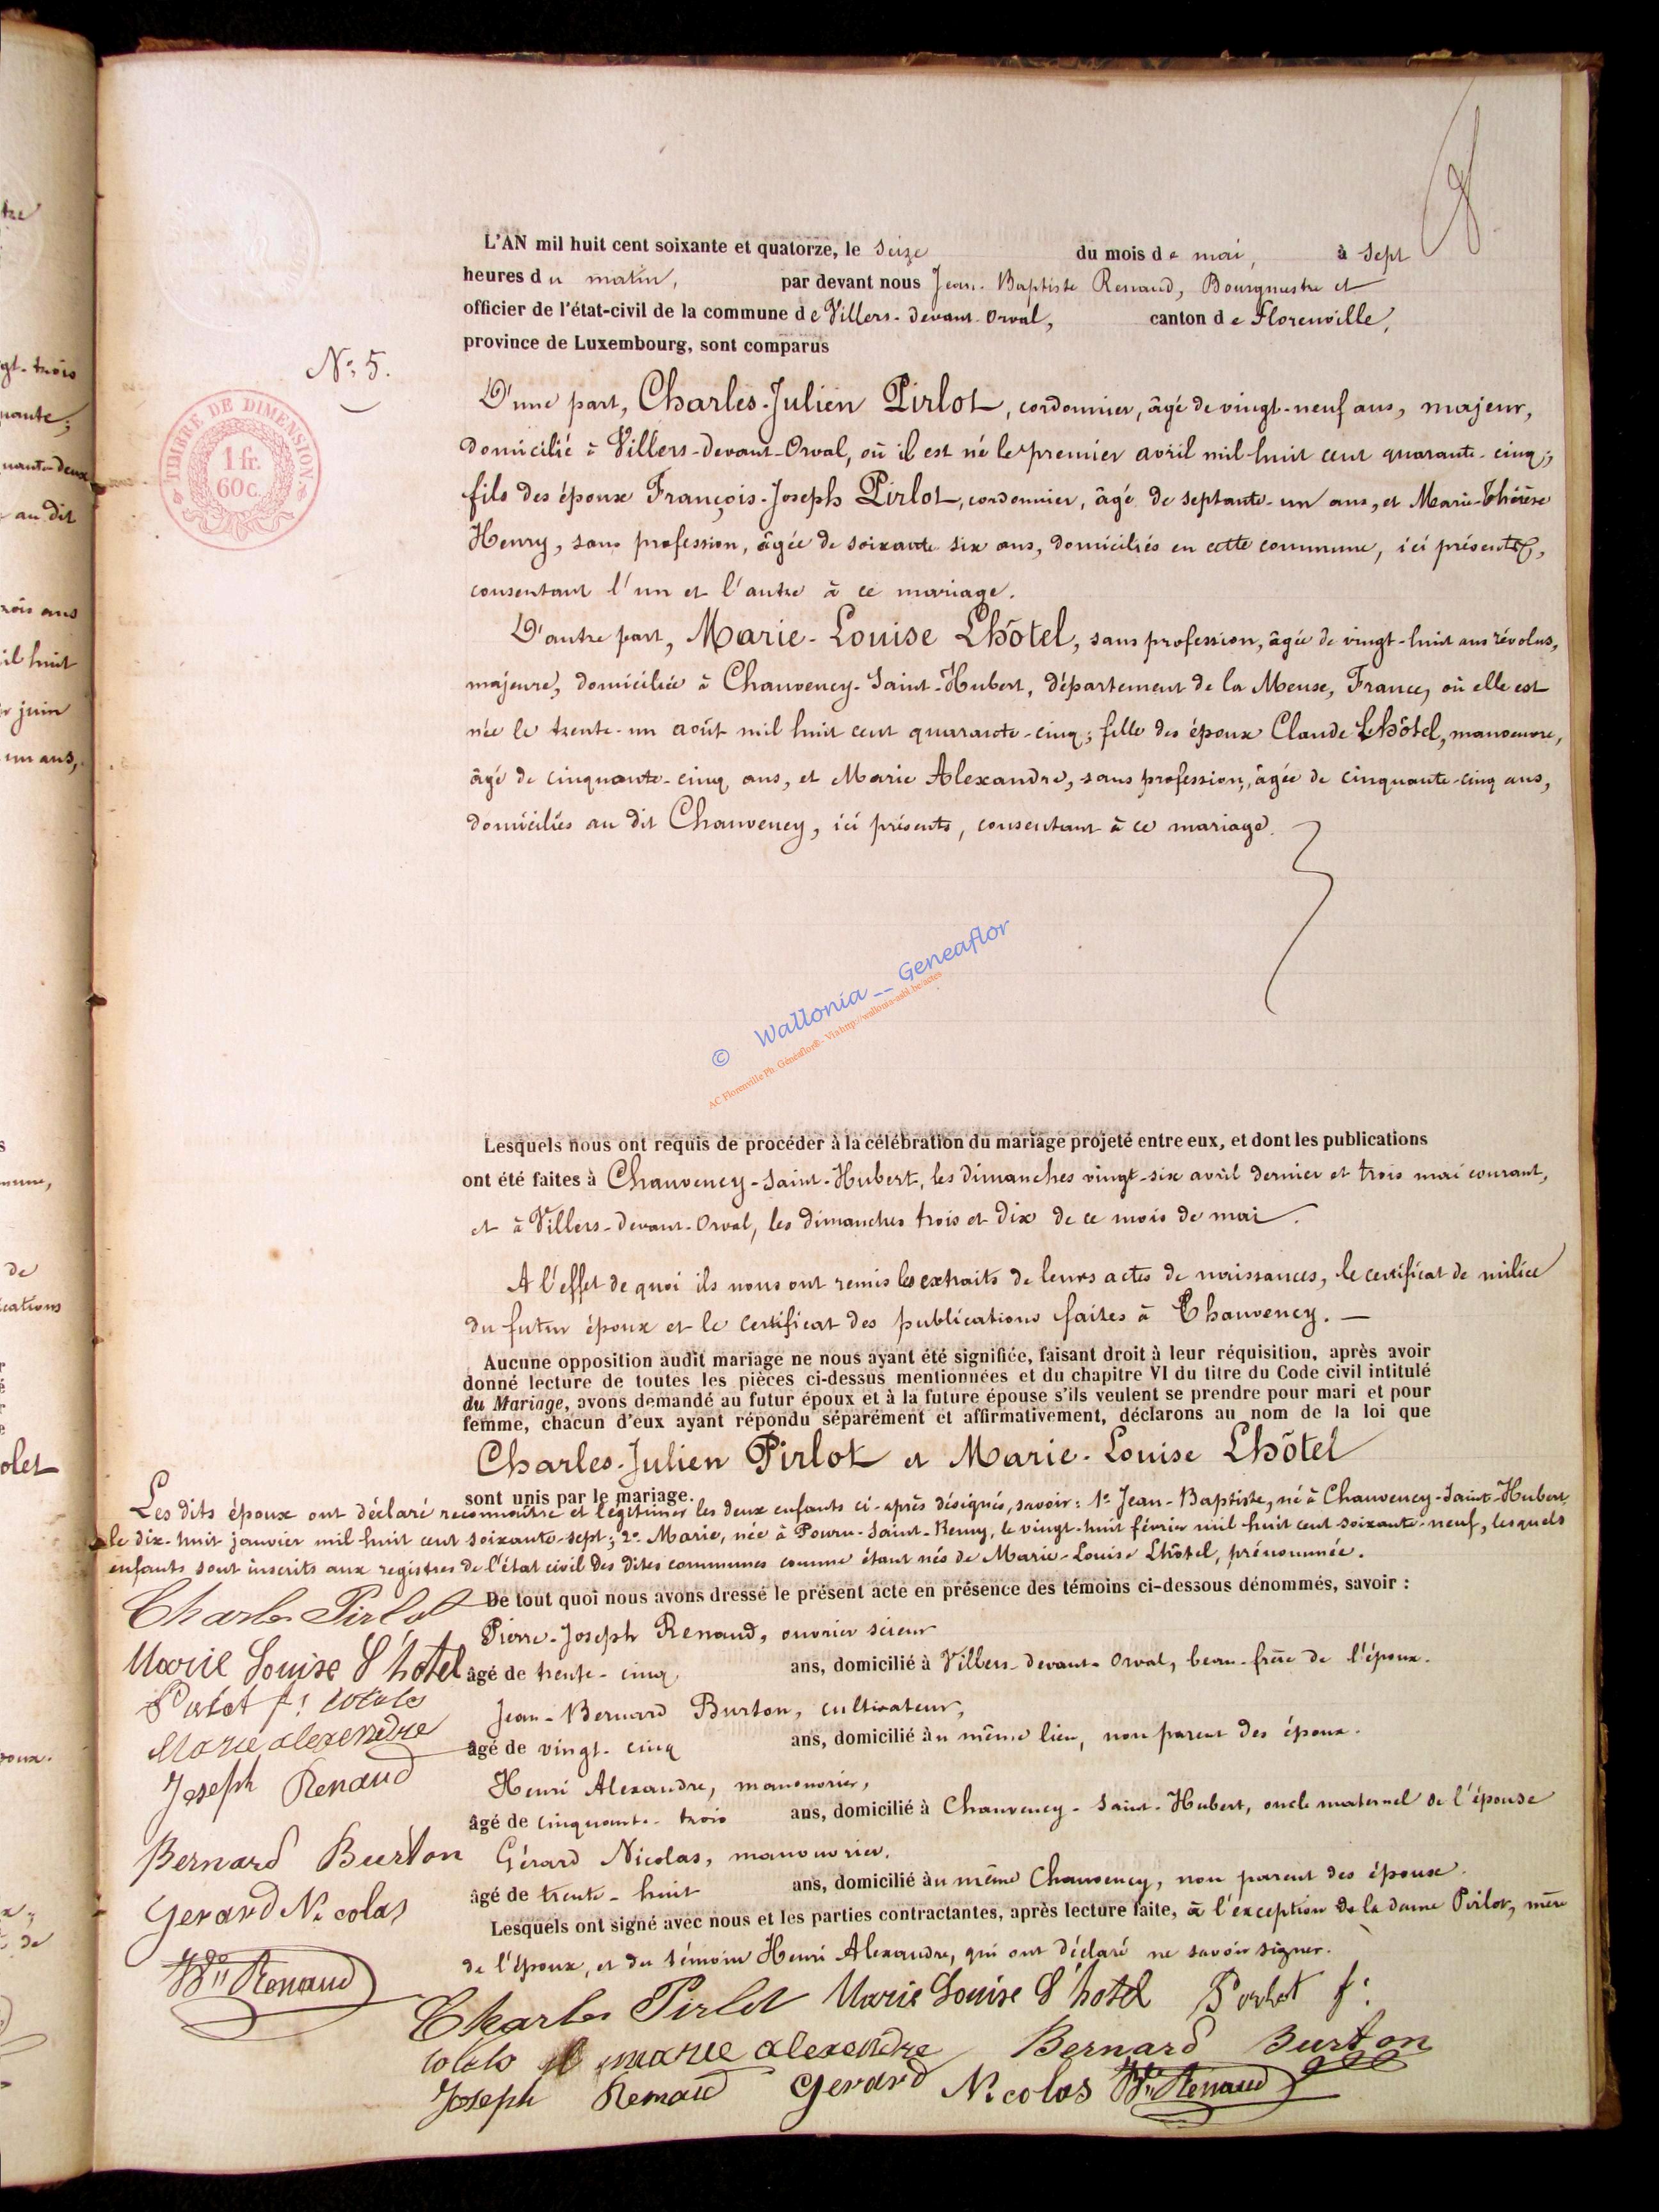 L'AN mil huit cent soixante et quatorze, le seize du mois de mai, à sept
heures du matin, par devant nous Jean-Baptiste Renaud, Bourgmestre et
officier de l'état-civil de la commune de Villers-devant-Orval, canton de Florenville,
province de Luxembourg, sont comparus
N° 5.
TIMBRE DE DIMENSION
1 fr.
60 c.
D'une part, Charles-Julien Pirlot, cordonnier, âgé de vingt-neuf ans, majeur,
domicilié à Villers-devant-Orval, où il est né le premier avril mil huit cent quarante-cinq;
fils des époux François-Joseph Pirlot, cordonnier, âgé de septante-un ans, et Marie-Thérèse
Henry, sans profession, âgée de soixante six ans, domiciliés en cette commune, ici présents,
consentant l'un et l'autre à ce mariage.
D'autre part, Marie-Louise Lhôtel, sans profession, âgée de vingt-huit ans révolus,
majeure, domiciliée à Chauvency-Saint-Hubert, département de la Meuse, France, où elle est
née le trente-un août mil huit cent quarante-cinq; fille des époux Claude Lhôtel, manoeuvre,
âgé de cinquante-cinq ans, et Marie Alexandre, sans profession, âgée de cinquante-cinq ans,
domiciliés au dit Chauvency, ici présents, consentant à ce mariage.
© Wallonia __ Geneaflor
AC Florenville Ph. Généaflor® - Via http://wallonia-asbl.be/actes
Lesquels nous ont requis de procéder à la célébration du mariage projeté entre eux, et dont les publications
ont été faites à Chauvency-Saint-Hubert, les dimanches vingt-six avril dernier et trois mai courant,
et à Villers-devant-Orval, les dimanches trois et dix de ce mois de mai.
A l'effet de quoi ils nous ont remis les extraits de leurs actes de naissances, le certificat de milice
du futur époux et le certificat des publications faites à Chauvency. —
Aucune opposition audit mariage ne nous ayant été signifiée, faisant droit à leur réquisition, après avoir
donné lecture de toutes les pièces ci-dessus mentionnées et du chapitre VI du titre du Code civil intitulé
du Mariage, avons demandé au futur époux et à la future épouse s'ils veulent se prendre pour mari et pour
femme, chacun d'eux ayant répondu séparément et affirmativement, déclarons au nom de la loi que
Charles-Julien Pirlot et Marie-Louise Lhôtel
sont unis par le mariage.
Les dits époux ont déclaré reconnaître et légitimer les deux enfants ci-après désignés, savoir: 1° Jean-Baptiste, né à Chauvency-Saint-Hubert,
le dix-huit janvier mil huit cent soixante-sept; 2° Marie, née à Pouru-Saint-Remy, le vingt-huit février mil huit cent soixante-neuf, lesquels
enfants sont inscrits aux registres de l'état civil des dites communes comme étant nés de Marie-Louise Lhôtel, prénommée.
De tout quoi nous avons dressé le présent acte en présence des témoins ci-dessous dénommés, savoir :
Pierre-Joseph Renaud, ouvrier scieur
âgé de trente-cinq ans, domicilié à Villers-devant-Orval, beau-frère de l'époux.
Jean-Bernard Burton, cultivateur,
âgé de vingt-cinq ans, domicilié au même lieu, non parent des époux.
Henri Alexandre, manouvrier,
âgé de cinquante-trois ans, domicilié à Chauvency-Saint-Hubert, oncle maternel de l'épouse
Gérard Nicolas, manouvrier.
âgé de trente-huit ans, domicilié au même Chauvency, non parent des époux.
Lesquels ont signé avec nous et les parties contractantes, après lecture faite, à l'exception de la dame Pirlot, mère
de l'époux, et du témoin Henri Alexandre, qui ont déclaré ne savoir signer.
Charles Pirlot
Marie Louise L'hôtel
marie alexendre
Joseph Renaud
Bernard Burton
Gerard Nicolas
Renaud
Charles Pirlot Marie Louise L'hotel
marie alexendre Bernard Burton
Joseph Renaud Gerard Nicolas Renaud